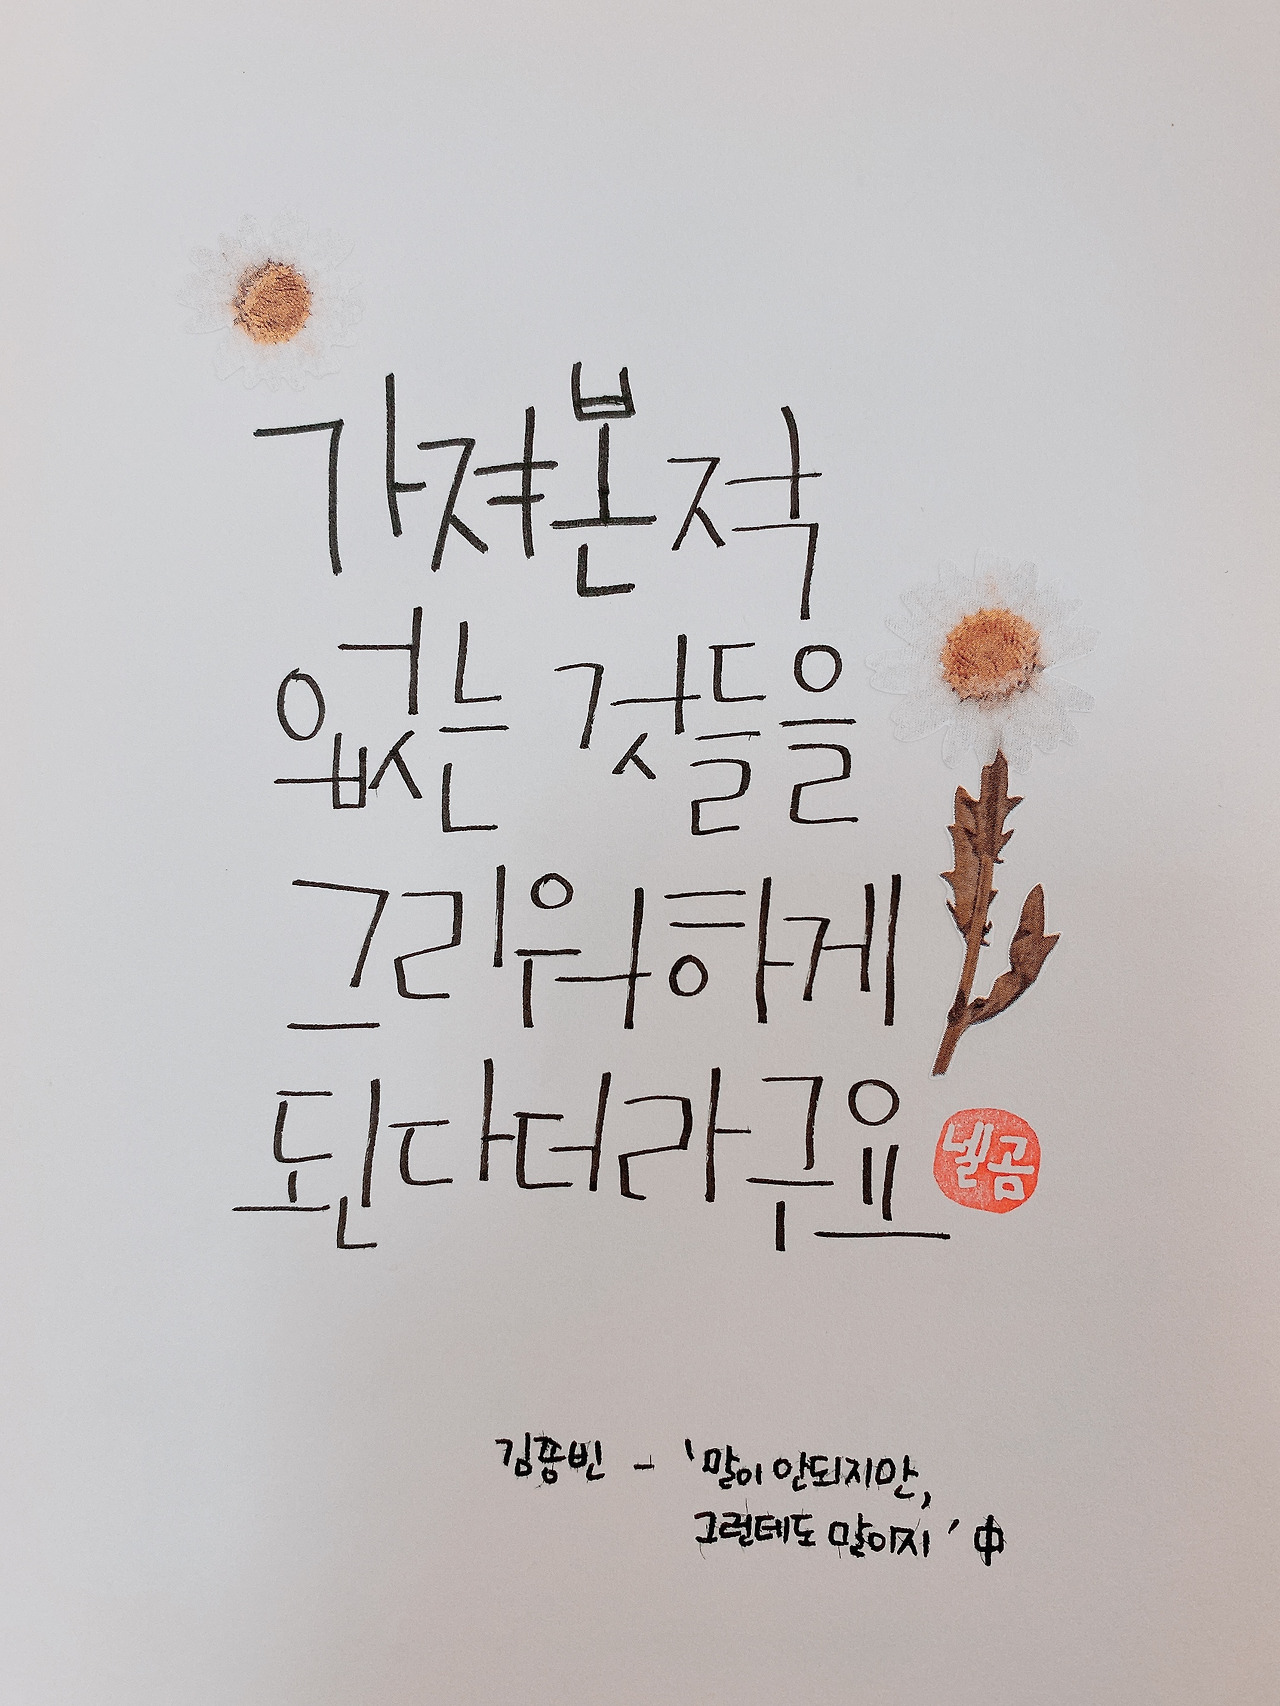 가져본적
없는 것들을
그리워하게
된다더라구요
넬곰
김종빈 - '말이 안되지만,
그런데도 말이지' 中